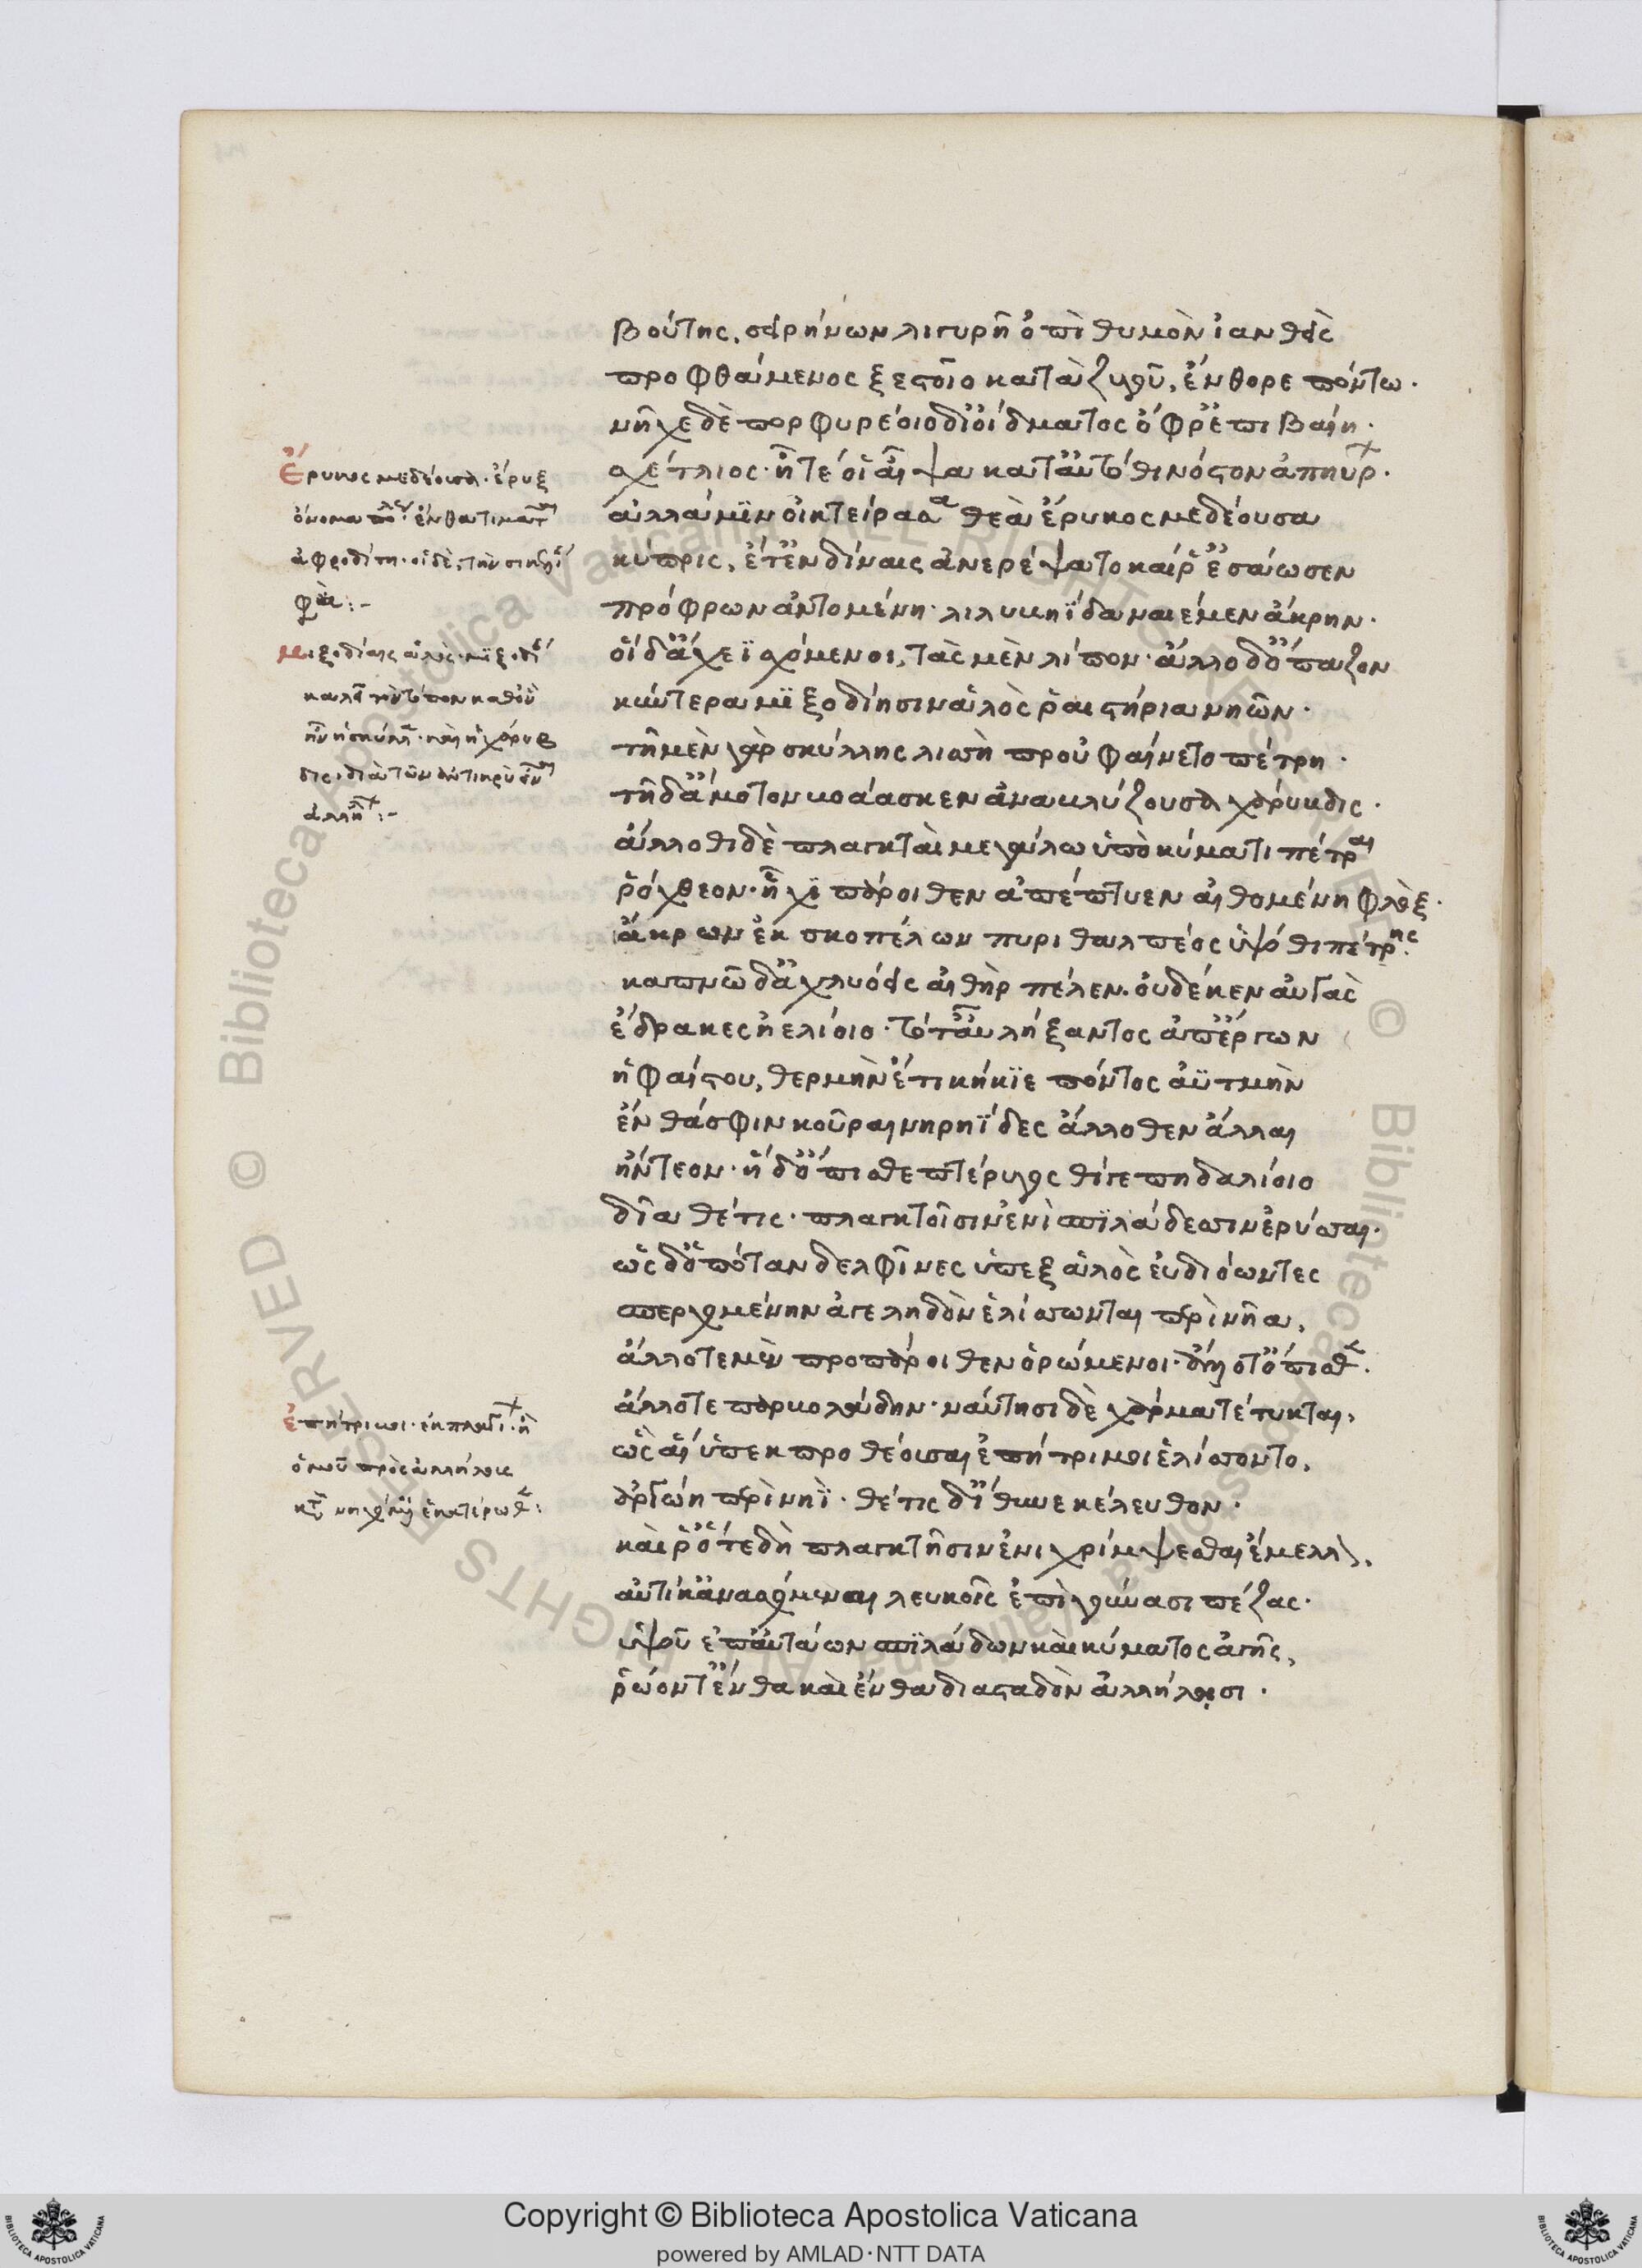 βούτης, σειρήνων λιγυρῆ ὀπὶ θυμὸν ἰανθεὶς
προφθάμενος ξεστοῖο κατὰ ζυγοῦ, ἔνθορε πόντω.
νῆχε δὲ πορφυρέοιο δι' οἴδματος ὄφρ' ἐπιβαίη.
σχέτλιος· ἦ τέ οἱ αἶψα καταυτόθι νόστον ἀπηύρ.
ἀλλά μιν οἰκτείρασα θεὰ ἔρυκος μεδέουσα
κύπρις, ἔτ' ἐν δίναις ἀνερέψατο καί ῥ' ἐσάωσεν
πρόφρων ἀντομένη· λιλυκηΐδα ναιέμεν ἄκρην.
οἱ δ' ἄχεϊ σχόμενοι, τὰς μὲν λίπον· ἄλλο δ' ὄπαζον
κύντερα μϊξοδίησιν ἁλὸς ῥαιστήρια νηῶν.
τῆ μὲν γὰρ σκύλλης λισσὴ προὐφαίνετο πέτρη.
τῆ δ' ἄμοτον κοάασκεν ἀνακλύζουσα χάρυκδις.
ἄλλοθι δὲ πλαγκταὶ μεγάλω ὑπὸ κύματι πέτραι
ῥόχθεον· ἧχϊ πάροιθεν ἀπέπτυεν αἰθομένη φλὸξ.
ἄκρων ἐκ σκοπέλων πυριθαλπέος ὑψόθι πέτρης.
καπνῶ δ' ἀχλυόεις αἰθὴρ πέλεν. οὐδέ κεν αὐγὰς
ἔδρακες ἠελίοιο. τότ' αὖ λήξαντος ἀπ' ἔργων
ἡφαίστου, θερμὴν ἔτι κήκϊε πόντος ἀϋτμὴν
ἔνθά σφιν κοῦραι νηρηΐδες ἄλλοθεν ἄλλαι
ἤντεον· ἡ δ' ὄπισθε πτέρυγος θίγε πηδαλίοιο
δῖα θέτις· πλαγκτοῖσιν ἐνὶ σπϊλάδεσσιν ἐρύσσαι.
ὡς δ' ὁπόταν δελφῖνες ὑπὲξ ἁλὸς εὐδιόωντες
σπερχομένην ἀγεληδὸν ἑλίσσωνται περὶ νῆα,
ἄλλοτε μὲν προπάροιθεν ὁρώμενοι· ἄλλοτ' ὄπισθε.
ἄλλοτε παρβολάδην· ναύτησι δὲ χάρμα τέτυκται,
ὣς αἱ ὑπεκπροθέουσαι ἐπήτριμοι ἑλίσσοντο,
ἀργώη περὶ νηῒ· θέτις δ' ἴθυνε κέλευθον.
καί ῥ' ὅτε δὴ πλαγκτῆσιν ἐνιχρίμψεσθαι ἔμελλον,
αὐτίκ' ἀνασχόμεναι λευκοῖς ἐπὶ γούνασι πέζας.
ὑψοῦ ἐπ' αὐτάων σπϊλάδων καὶ κύματος ἀγῆς,
ῥώοντ' ἔνθα καὶ ἔνθα διασταδὸν ἀλλήλοισι.
Ἔρυκος μεδέουσα. ἔρυξ
μϊξοδίαις ἁλὸς. μϊξοδί
ἐπήτριμοι·
Copyright © Biblioteca Apostolica Vaticana
powered by AMLAD·NTT DATA